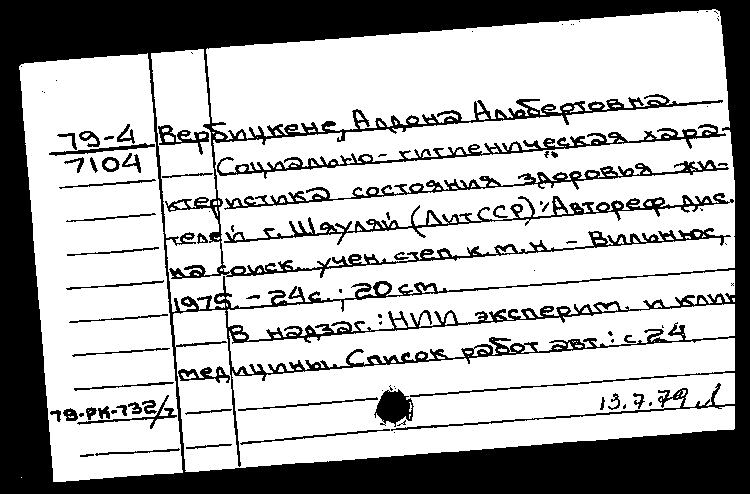 79-4 Вербицкене, Алдона Альбертовна.
7104 Социально-гигиеническая хара-
ктеристика состояния здоровья жи-
телей г. Шяуляй (ЛитССР): Автореф. дис.
на соиск. учен. степ. к. м. н. - Вильнюс,
1975. - 24с.; 20 см.
В надзаг.: НИИ эксперим. и клин
медицины. Список работ авт.: с. 24
79-РК-732/7
13.7.79